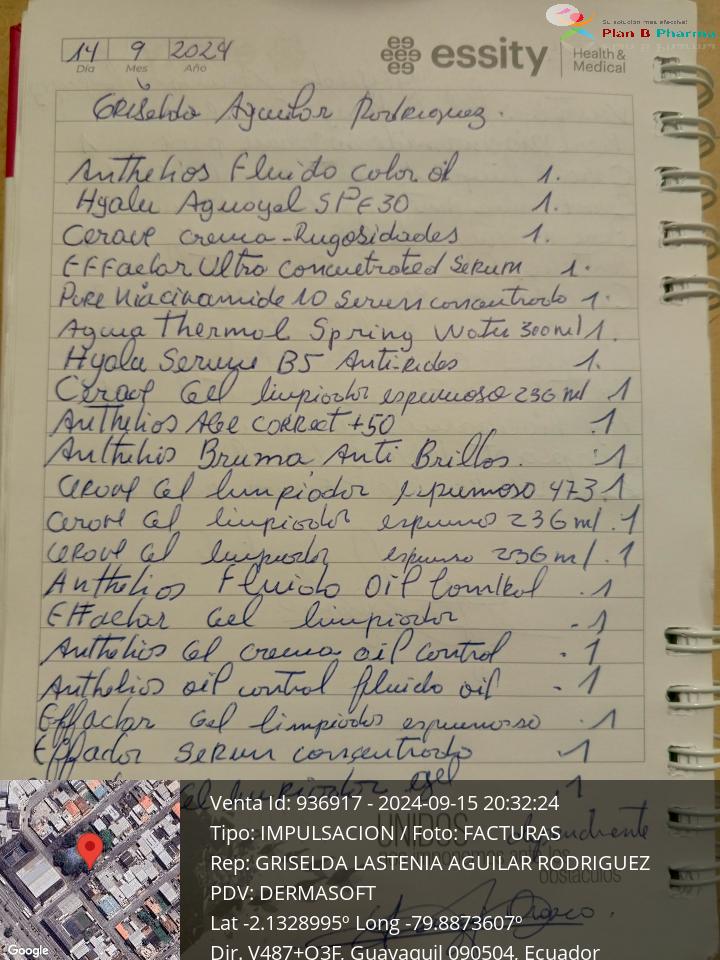 Su solución más efectiva!
Plan B Pharma
14 9 2024
Día Mes Año
essity
Health &
Medical
Griselda Aguilar Rodriguez.
Anthelios Fluido color oil 1.
Hyalu Aguagel SPF30 1.
Cerave crema-Rugosidades 1.
EFFaclar Ultra Concentrated Serum 1.
Pure Niacinamide 10 Serum concentrado 1.
Agua Thermal Spring Water 300ml 1.
Hyalu Serum B5 Anti-rides 1.
Cerave Gel limpiador espumoso 236 ml 1
Anthelios Age correct +50 .1
Anthelios Bruma Anti Brillos. 1
Cerave Gel limpiador espumoso 473.1
Cerave Gel limpiador espumo 236 ml .1
Cerave Gel limpiador espumo 236 ml .1
Anthelios Fluido Oil Control .1
Effaclar Gel limpiador -1
Anthelios Gel crema oil control .1
Anthelios oil control fluido oil - 1
Effaclar Gel limpiador espumoso .1
Effaclar Serum concentrado .1
Gel limpiador 1
UNIDOS
obstáculos
Venta Id: 936917 - 2024-09-15 20:32:24
Tipo: IMPULSACION / Foto: FACTURAS
Rep: GRISELDA LASTENIA AGUILAR RODRIGUEZ
PDV: DERMASOFT
Lat -2.1328995º Long -79.8873607º
Dir. V487+Q3F, Guayaquil 090504, Ecuador
Google